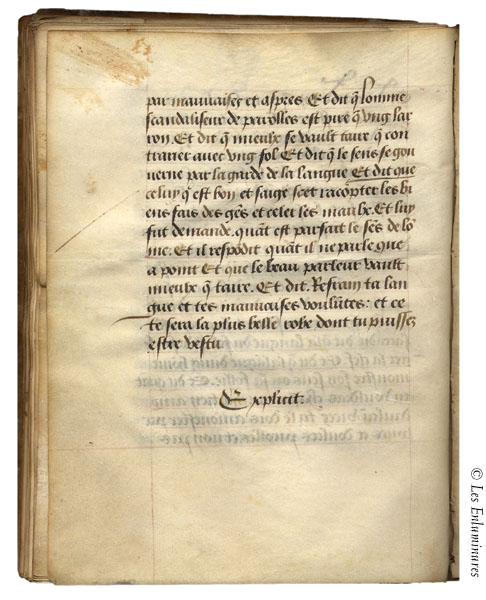 par mauvaises et aspres Et dit q̃ lomme
scandaliseur de parolles est pire q̃ ung lar
ron. Et dit q̃ mieulx se vault taire q̃ con
traier avec ung fol Et dit q̃ le sens se gou
verne par la garde de la langue Et dit que
celuy q̃ est bon et saige scet racõpter les bi
ens fais des gẽs et celer les maulx. Et luy
fut demande. quãt est parfait le sẽs de lo
me. Et il respõdit quãt il ne parle que
a point Et que le beau parleur vault
mieulx q̃ taire. Et dit. Refrain ta lan
gue et tes mauvaises voulũtes: et ce
te sera la plus belle robe dont tu puisses
estre vestu
Explicit.
© Les Enluminures